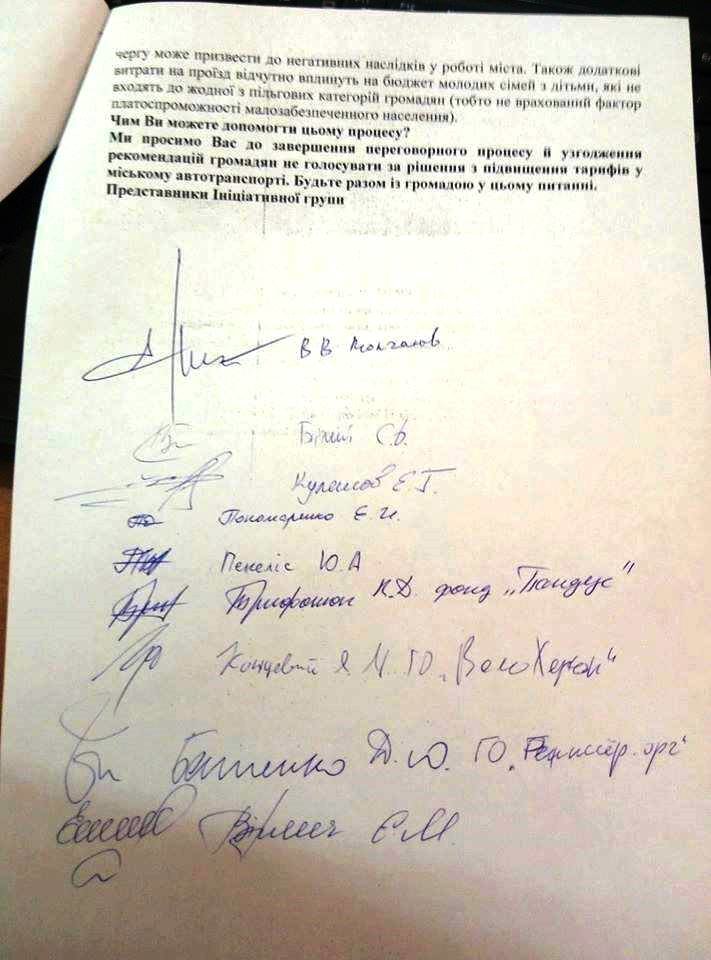 чергу може призвести до негативних наслідків у роботі міста. Також додаткові
витрати на проїзд відчутно вплинуть на бюджет молодих сімей з дітьми, які не
входять до жодної з пільгових категорій громадян (тобто не врахований фактор
платоспроможності малозабезпеченого населення).
Чим Ви можете допомогти цьому процесу?
Ми просимо Вас до завершення переговорного процесу й узгодження
рекомендацій громадян не голосувати за рішення з підвищення тарифів у
міському автотранспорті. Будьте разом із громадою у цьому питанні.
Представники Ініціативної групи
В В Молчанов
Білий С.
Кулешов Є.Г.
Пономаренко Є.
Пекеліс Ю.А
К.Д. фонд „Пандус"
Концевий Я. ГО „ВелоХерсон"
Д.Ю. ГО
Є.М.